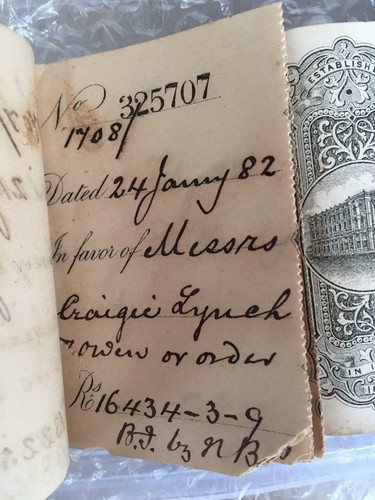 No 325707
1708/
Dated 24 Jany 82
In favor of Messrs
Craigie Lynch
Owen or order
Rs 16434-3-9
ESTABLISHE
IN I